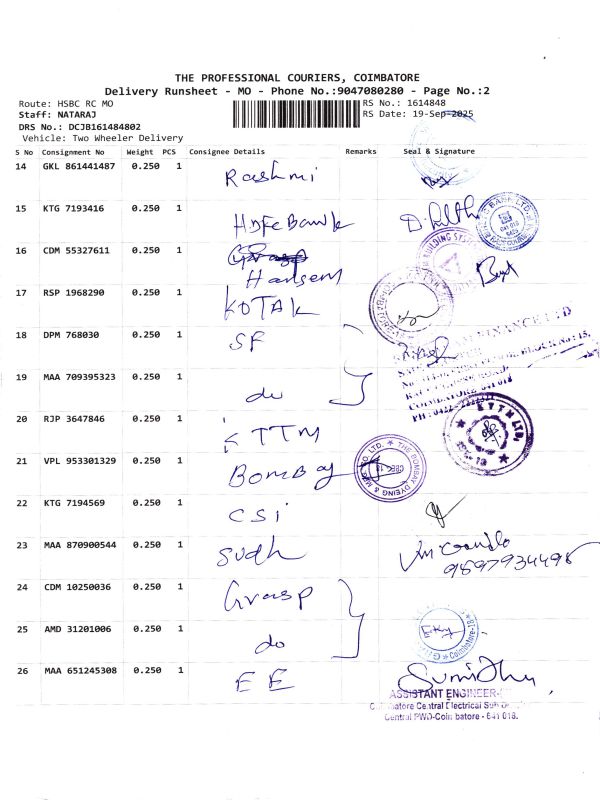 THE PROFESSIONAL COURIERS, COIMBATORE
Delivery Runsheet - MO - Phone No.:9047080280 - Page No.:2
Route: HSBC RC MO
RS No.: 1614848
Staff: NATARAJ
RS Date: 19-Sep-2025
DRS No.: DCJB161484802
Vehicle: Two Wheeler Delivery
S No Consignment No Weight PCS Consignee Details Remarks Seal & Signature
14 GKL 861441487 0.250 1 Rashmi
15 KTG 7193416 0.250 1 HDFC Bank
16 CDM 55327611 0.250 1 Hansem
17 RSP 1968290 0.250 1 KOTAK
18 DPM 768030 0.250 1 SF
19 MAA 709395323 0.250 1 do
20 RJP 3647846 0.250 1 KTTM
21 VPL 953301329 0.250 1 Bombay
THE BOMBAY DYEING & MFG CO. LTD.
22 KTG 7194569 0.250 1 CSi
23 MAA 870900544 0.250 1 Sudh
24 CDM 10250036 0.250 1 Grasp
25 AMD 31201006 0.250 1 do
Coimbatore-18
26 MAA 651245308 0.250 1 EE
ASSISTANT ENGINEER
Central Electrical Sub
Central PWD-Coimbatore - 641 018.